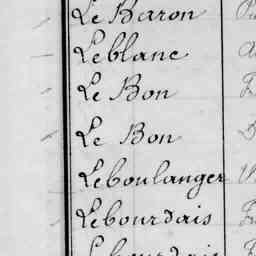 Le Baron
Leblanc
Le Bon
Le Bon
Leboulanger
Lebourdais
Lebourdais